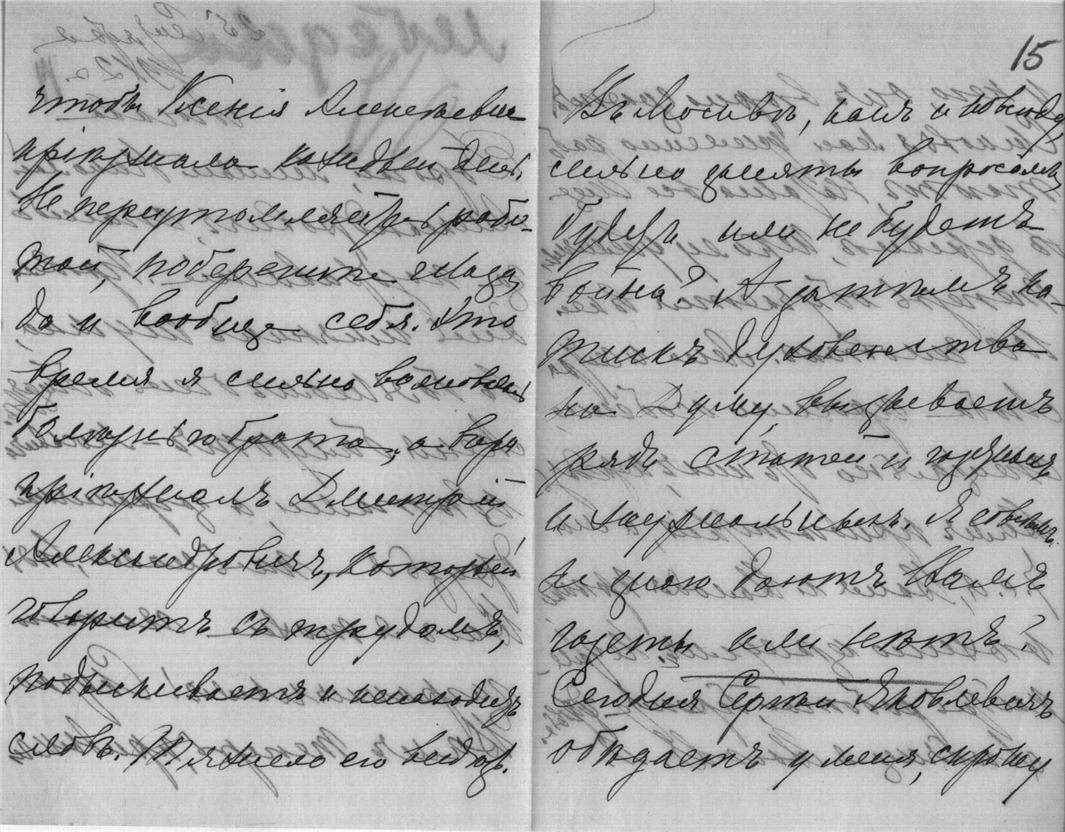 чтобы Ксенія Алексѣевна
пріѣзжала каждый день.
Не переутомляйтесь рабо-
той, поберегите глаза,
да и вообще себя. Это
время я сильно волновалась
болѣзнью брата, а вчера
пріѣзжалъ Дмитрій
Александровичъ, который
говоритъ съ трудомъ,
подыскиваетъ и не находитъ
словъ. Тяжело его видѣть.
15
Въ Москвѣ, какъ и повсюду,
сильно заняты вопросомъ
будетъ или не будетъ
война? А затѣмъ на-
тискъ духовенства
на Думу вызываетъ
рядъ статей и газетныхъ
и журнальныхъ. Я совсѣмъ
не знаю даютъ Вамъ
газеты или нѣтъ?
Сегодня Сергѣй Яковлевичъ
обѣдаетъ у меня, спрошу